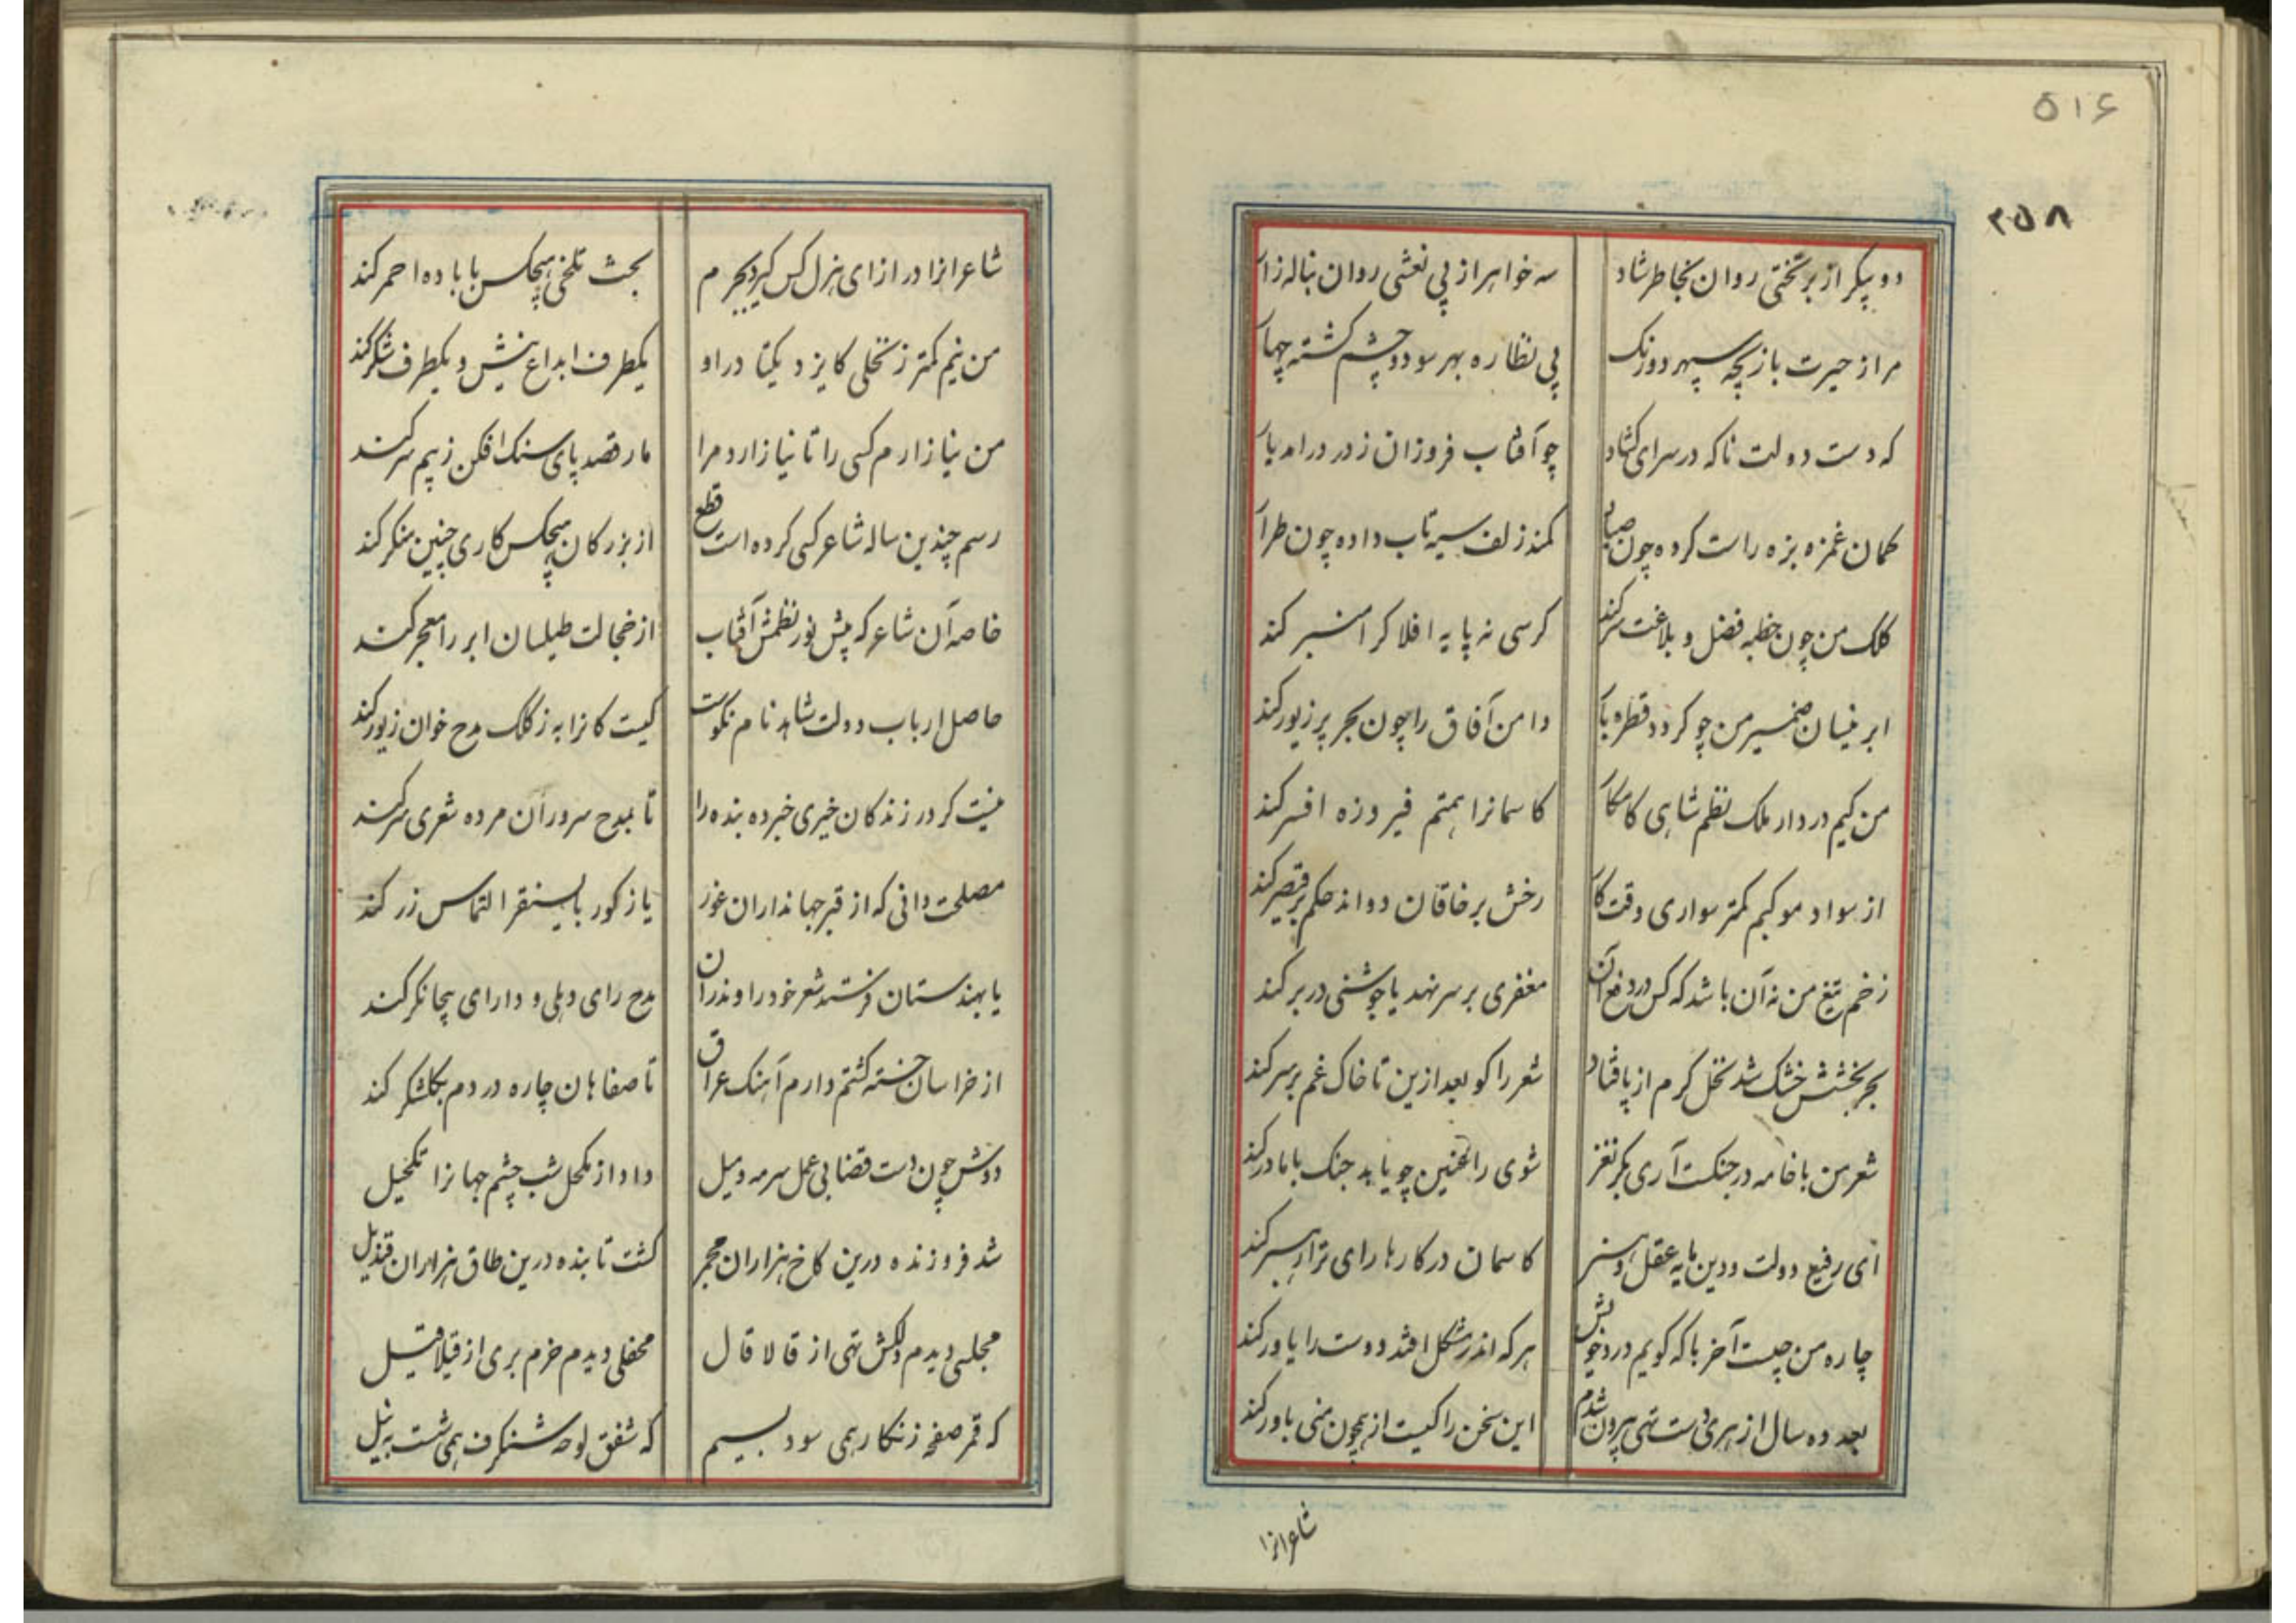 ۵۱۶
۲۵۸
دو پیکر از بر تختی روان بخاطر شاد
سه خواهر از پی نعشی روان بناله زار
مرا ز حیرت بازیچه سپهر دو رنک
پی نظاره بهر سو دو چشم کشته چهار
که دست دولت ناکه در سرای کشاد
چو آفتاب فروزان ز در درامد یار
کمان غمزه بزه راست کرده چون
کمند زلف سیه تاب داده چون طرار
کلک من چون خطبه فضل و بلاغت سر کند
کرسی نه پایه افلاک را منبر کند
ابر نیسان ضمیر من چو کردد قطره بار
دامن آفاق را چون بحر پر زیور کند
من کیم در دار ملک نظم شاهی کامکار
کاسمانرا همتم فیروزه افسر کند
از سواد موکبم کمتر سواری وقت کار
رخش بر خاقان دواند حکم بر قیصر کند
زخم تیغ من نه آن باشد که کس در دفع آن
مغفری بر سر نهد یا جوشنی در بر کند
بحر بخشش خشک شد نخل کرم از پا فتاد
شعر را کو بعد ازین تا خاک غم بر سر کند
شعر من با خامه در جنکست آری بکر نغز
شوی را عنین چو یابد جنک با مادر کند
ای رفیع دولت و دین مایه عقل و هنر
کاسمان در کارها رای ترا رهبر کند
چاره من چیست آخر با که کویم درد خویش
هر که اندر مشکل افتد دوست را یاور کند
بعد ده سال از هری دست تهی بیرون شدم
این سخن را کیست از همچون منی باور کند
شاعرانرا
شاعرانرا در ازای هزل کس کیرد بجرم
بحث تلخی هیچکس با باده احمر کند
من نیم کمتر ز نخلی کایزد یکتا در او
یکطرف ابداع نیش و یکطرف شکر کند
من نیازارم کسی را تا نیازارد مرا
مار قصد پای سنک افکن ز بیم سر کند
رسم چندین ساله شاعر کسی کرده است قطع
از بزرکان هیچکس کاری چنین منکر کند
خاصه آن شاعر که پیش نور نظمش آفتاب
از خجالت طیلسان ابر را معجر کند
حاصل ارباب دولت شاهد نام نکوست
کیست کانرا به ز کلک مدح خوان زیور کند
نیست کر در زندکان خیری خبر ده بنده را
تا بمدح سروران مرده شعری سر کند
مصلحت دانی که از قبر جهانداران غور
یا ز کور بایسنقر التماس زر کند
یا بهندستان فرستد شعر خود را وندران
مدح رای دهلی و دارای بیجانکر کند
از خراسان خسته کشتم دارم آهنک عراق
تا صفاهان چاره دردم بکلشکر کند
دوش چون دست قضا بی عمل سرمه و میل
داد از مکحل شب چشم جهانرا تکحیل
شد فروزنده درین کاخ هزاران مجمر
کشت تابنده درین طاق هزاران قندیل
مجلسی دیدم دلکش تهی از قالا قال
محفلی دیدم خرم بری از قیلا قیل
که قمر صفحه زنکار همی سود بسیم
که شفق لوحه شنکرف همی شست به نیل